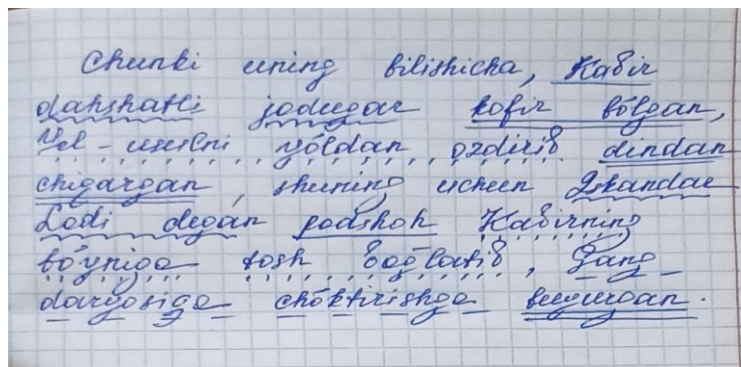 Chunki uning bilishicha, Kabir
dahshatli jodugar kofir bõlgan,
Yel-usulni yõldan ozdirib dindan
chigargan, shuning uchun Iskandar
Lodi degan podshoh Kabirning
bõyniga tosh boğlatib, Gang
daryosiga chõktirishga buyurgan.